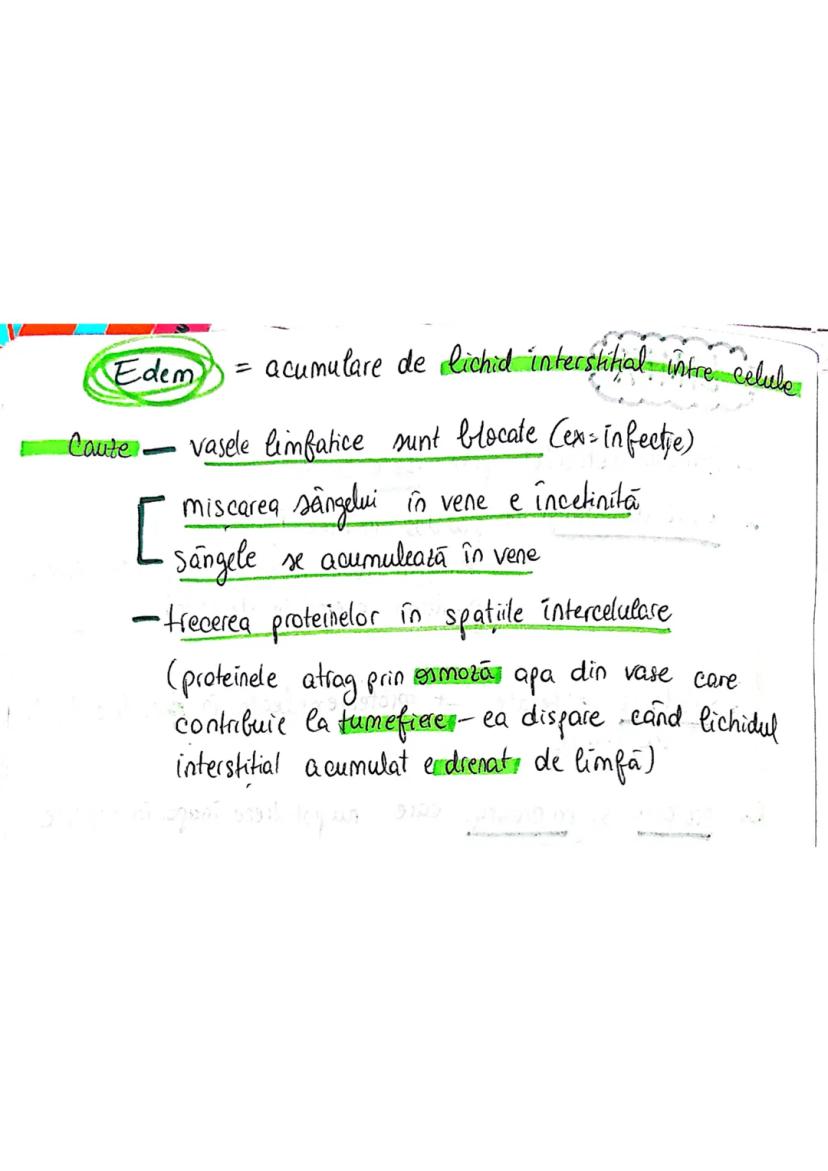 Edem = acumulare de lichid interstițial între celule
Cauze — vasele limfatice sunt blocate (ex= infecție)
miscarea sângelui în vene e încetinită
sângele se acumulează în vene
— trecerea proteinelor în spațiile intercelulare
(proteinele atrag prin osmoză apa din vase care
contribuie la tumefiere — ea dispare când lichidul
interstițial acumulat e drenat de limfă)